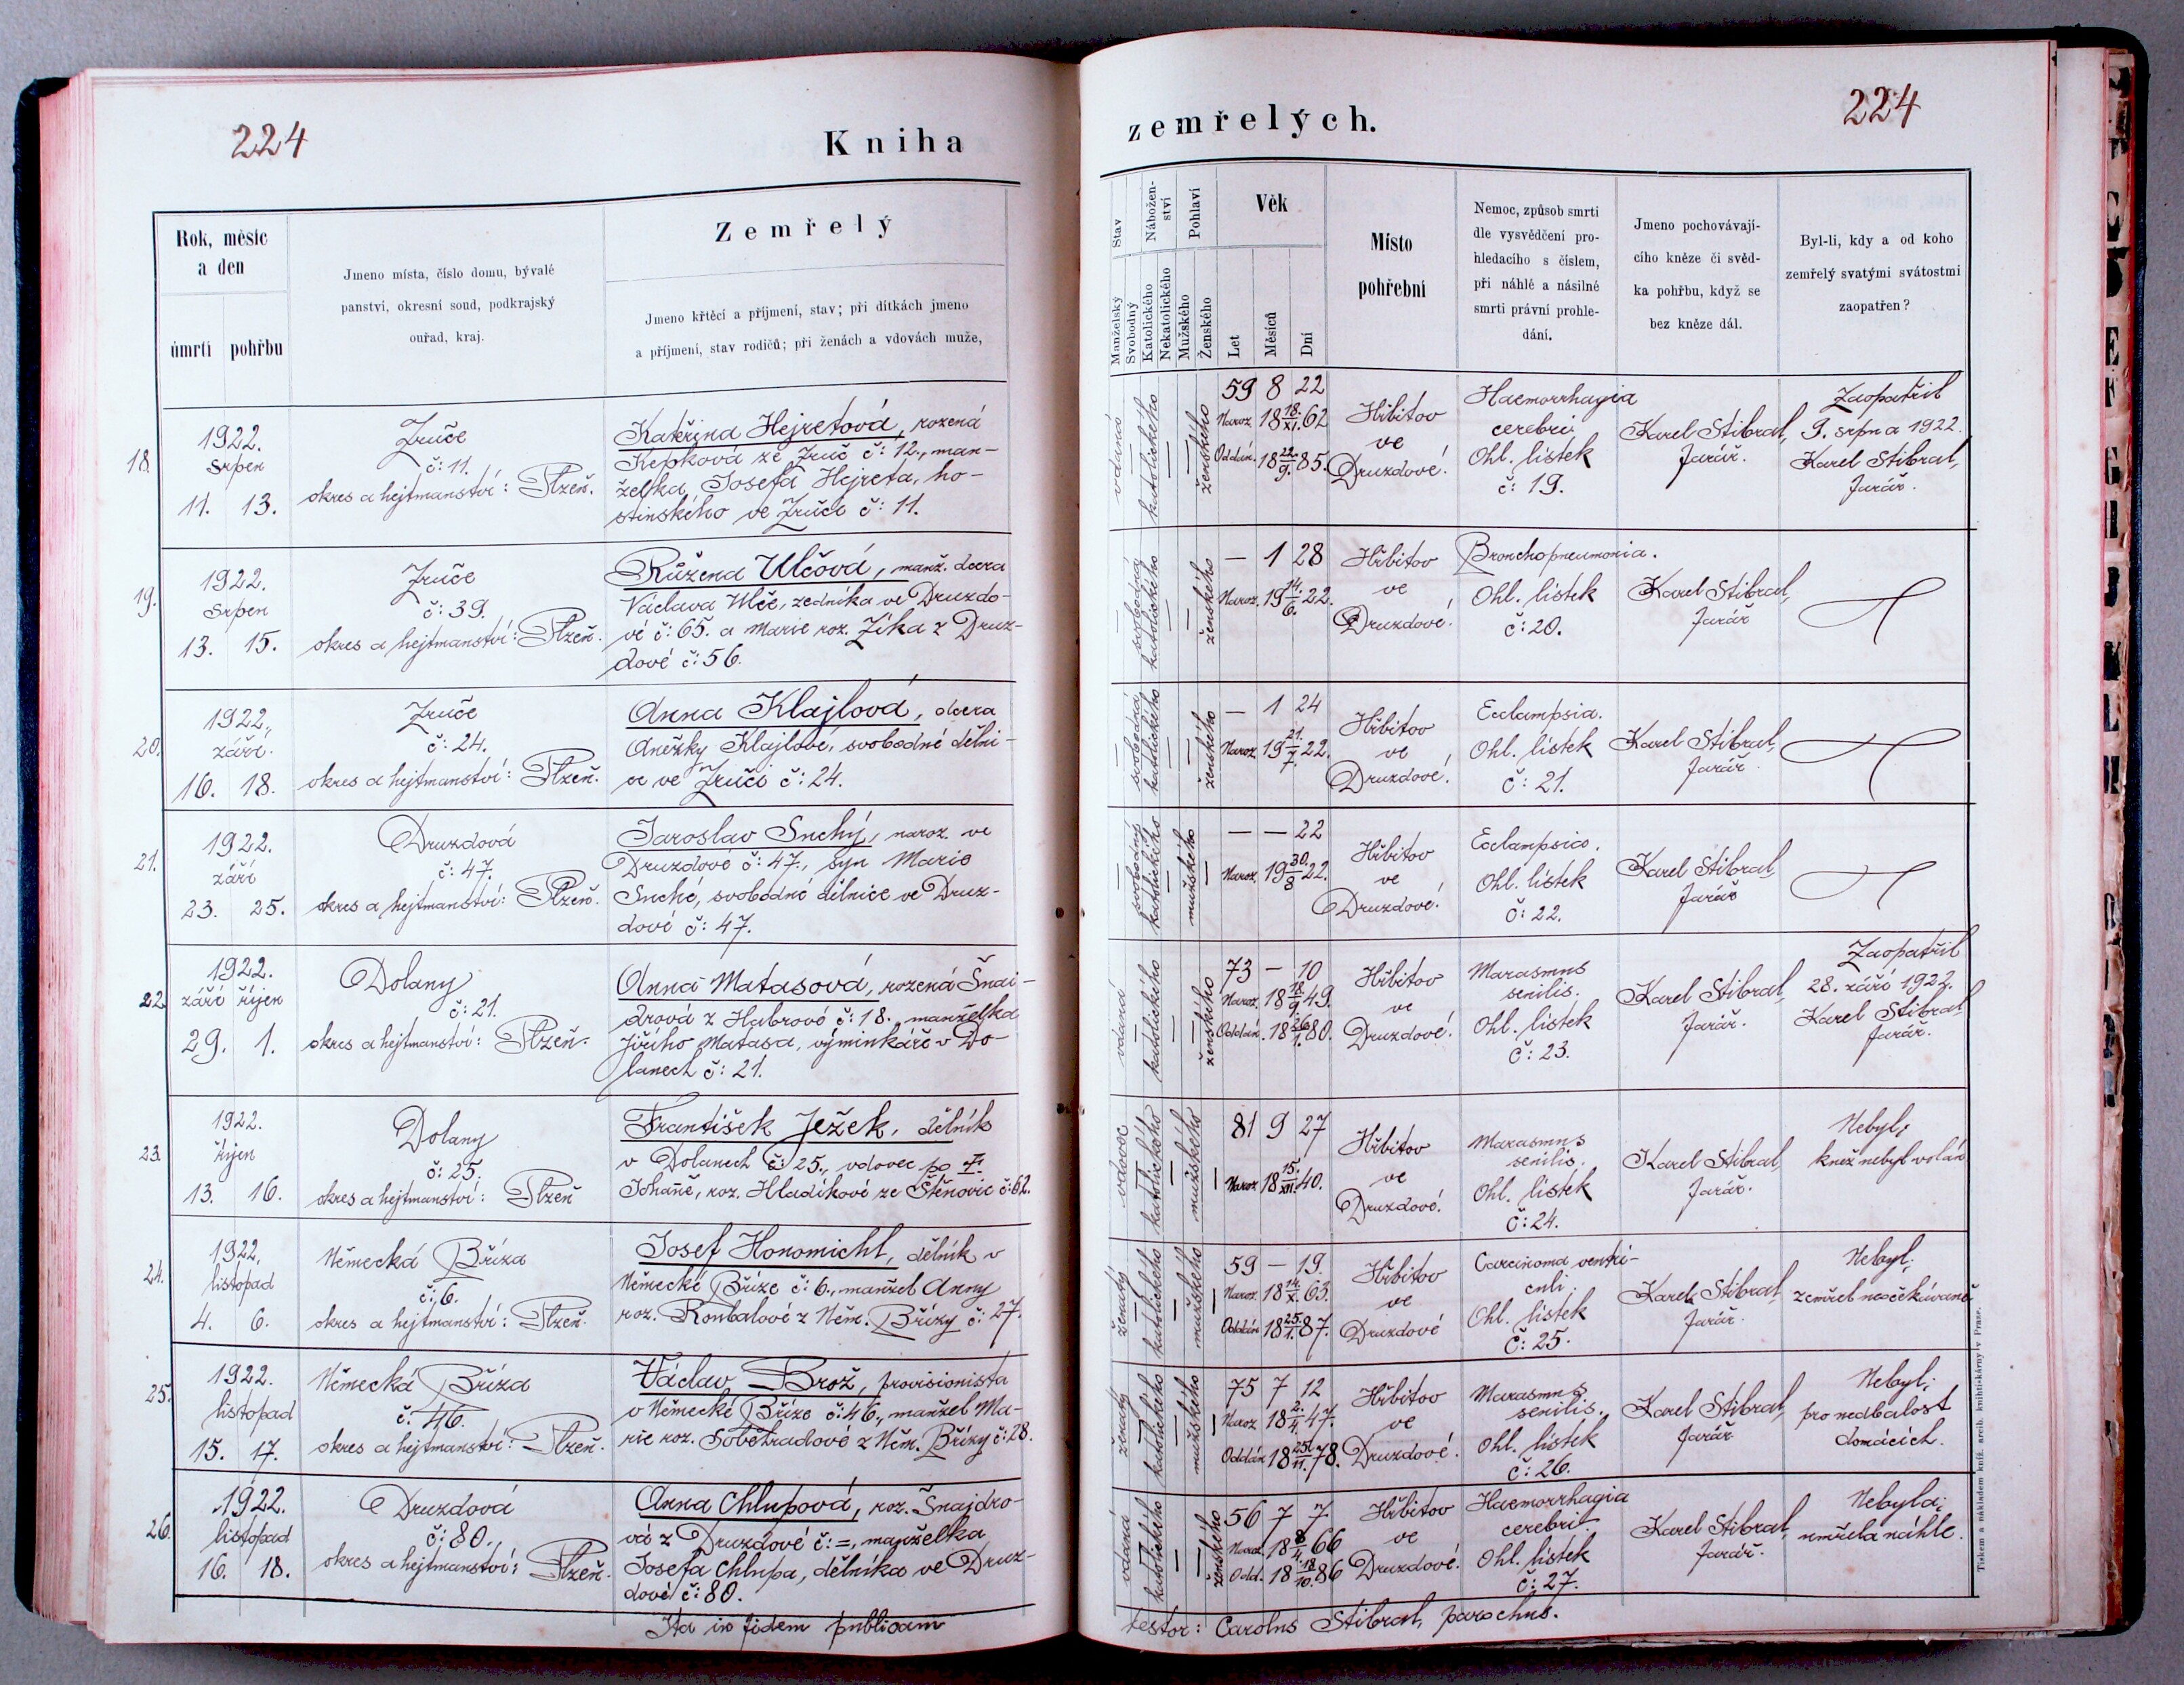 224
Kniha
zemřelých.
224
Rok, měsíc
a den
úmrtí
pohřbu
Jmeno místa, číslo domu, bývalé
panství, okresní soud, podkrajský
ouřad, kraj.
Zemřelý
Jmeno křtěcí a příjmení, stav; při dítkách jmeno
a příjmení, stav rodičů; při ženách a vdovách muže,
Stav
Manželský
Svobodný
Nábožen-
ství
Katolického
Nekatolického
Pohlaví
Mužského
Ženského
Věk
Let
Měsíců
Dní
Místo
pohřební
Nemoc, způsob smrti
dle vysvědčení pro-
hledacího s číslem,
při náhlé a násilné
smrti právní prohle-
dání.
Jmeno pochovávají-
cího kněze či svěd-
ka pohřbu, když se
bez kněze dál.
Byl-li, kdy a od koho
zemřelý svatými svátostmi
zaopatřen?
18.
1922.
srpen
11. 13.
Zruče
č: 11.
okres a hejtmanství: Plzeň.
Kateřina Hejretová, rozená
Kepková ze Zruč č: 12., man-
želka Josefa Hejreta, ho-
stinského ve Zruči č: 11.
vdaná
katolického
ženského
59 8 22
Naroz. 18 18./XI. 62
Oddán. 18 22./9. 85.
Hřbitov
ve
Druzdové.
Haemorrhagia
cerebri
Ohl. lístek
č: 19.
Karel Stibral,
farář.
Zaopatřil
9. srpna 1922.
Karel Stibral,
farář.
19.
1922.
srpen
13. 15.
Zruče
č: 39.
okres a hejtmanství: Plzeň.
Růžena Ulčová, manž. dcera
Václava Ulče, zedníka ve Druzdo-
vé č: 65. a Marie roz. Zíka z Druz-
dové č: 56.
svobodná
katolického
ženského
— 1 28
Naroz. 19 14./6. 22.
Hřbitov
ve
Druzdové.
Bronchopneumonia.
Ohl. lístek
č: 20.
Karel Stibral,
farář
20.
1922.
září.
16. 18.
Zruče
č: 24.
okres a hejtmanství: Plzeň.
Anna Klajlová, dcera
Anežky Klajlové, svobodné dělni-
ce ve Zruči č: 24.
svobodná
katolického
ženského
— 1 24
Naroz. 19 21./7 22.
Hřbitov
ve
Druzdové.
Eclampsia.
Ohl. lístek
č: 21.
Karel Stibral,
farář.
21.
1922.
září
23. 25.
Druzdová
č: 47.
okres a hejtmanství: Plzeň.
Jaroslav Suchý, naroz. ve
Druzdové č: 47., syn Marie
Suché, svobodné dělnice ve Druz-
dové č: 47.
svobodný
katolického
mužského
— — 22
Naroz. 19 30./8 22.
Hřbitov
ve
Druzdové.
Eclampsia.
Ohl. lístek
č: 22.
Karel Stibral,
farář
22.
1922.
září říjen
29. 1.
Dolany
č: 21.
okres a hejtmanství: Plzeň.
Anna Matasová, rozená Šnai-
drová z Habrové č: 18., manželka
Jiřího Matasa, výminkáře v Do-
lanech č: 21.
vdaná
katolického
ženského
73 — 10
Naroz. 18 18./9. 49.
Oddán. 18 26./1. 80.
Hřbitov
ve
Druzdové.
Marasmus
senilis.
Ohl. lístek
č: 23.
Karel Stibral,
farář.
Zaopatřil
28. září 1922.
Karel Stibral
farář.
23.
1922.
říjen
13. 16.
Dolany
č: 25.
okres a hejtmanství: Plzeň
František Ježek, dělník
v Dolanech č: 25., vdovec po †
Johaně, roz. Hladíkové ze Štěnovic č: 62.
vdovec
katolického
mužského
81 9 27
Naroz. 18 15./XII. 40.
Hřbitov
ve
Druzdové.
Marasmus
senilis.
Ohl. lístek
č: 24.
Karel Stibral,
farář.
Nebyl;
kněz nebyl volán
24.
1922.
listopad
4. 6.
Německá Bříza
č: 6.
okres a hejtmanství: Plzeň.
Josef Honomichl, dělník v
Německé Bříze č: 6., manžel Anny
roz. Roubalové z Něm. Břízy č: 27.
ženatý
katolického
mužského
59 — 19.
Naroz. 18 14./X. 63.
Oddán 18 25./1. 87.
Hřbitov
ve
Druzdové
Carcinoma ventri-
culi.
Ohl. lístek
č: 25.
Karel Stibral,
farář.
Nebyl;
zemřel neočekávaně
25.
1922.
listopad
15. 17.
Německá Bříza
č: 46.
okres a hejtmanství: Plzeň.
Václav Brož, provisionista
v Německé Bříze č: 46., manžel Ma-
rie roz. Soběhradové z Něm. Břízy č: 28.
ženatý
katolického
mužského
75 7 12
Naroz 18 2./4. 47.
Oddán 18 25./11. 78.
Hřbitov
ve
Druzdové.
Marasmus
senilis.
Ohl. lístek
č: 26.
Karel Stibral,
farář
Nebyl;
pro nedbalost
domácích.
26.
1922.
listopad
16. 18.
Druzdová
č: 80.
okres a hejtmanství: Plzeň.
Anna Chlupová, roz. Šnajdro-
vá z Druzdové č: =, manželka
Josefa Chlupa, dělníka ve Druz-
dové č: 80.
vdaná
katolického
ženského
56 7 7
Naroz. 18 8/4. 66
Odd. 18 18/10. 86
Hřbitov
ve
Druzdové.
Haemorrhagia
cerebri
Ohl. lístek
č: 27.
Karel Stibral,
farář.
Nebyla;
umřela náhle.
Ita in fidem publicam
testor: Carolus Stibral, parochus.
Tiskem a nákladem kníž. arcib. knihtiskárny v Praze.